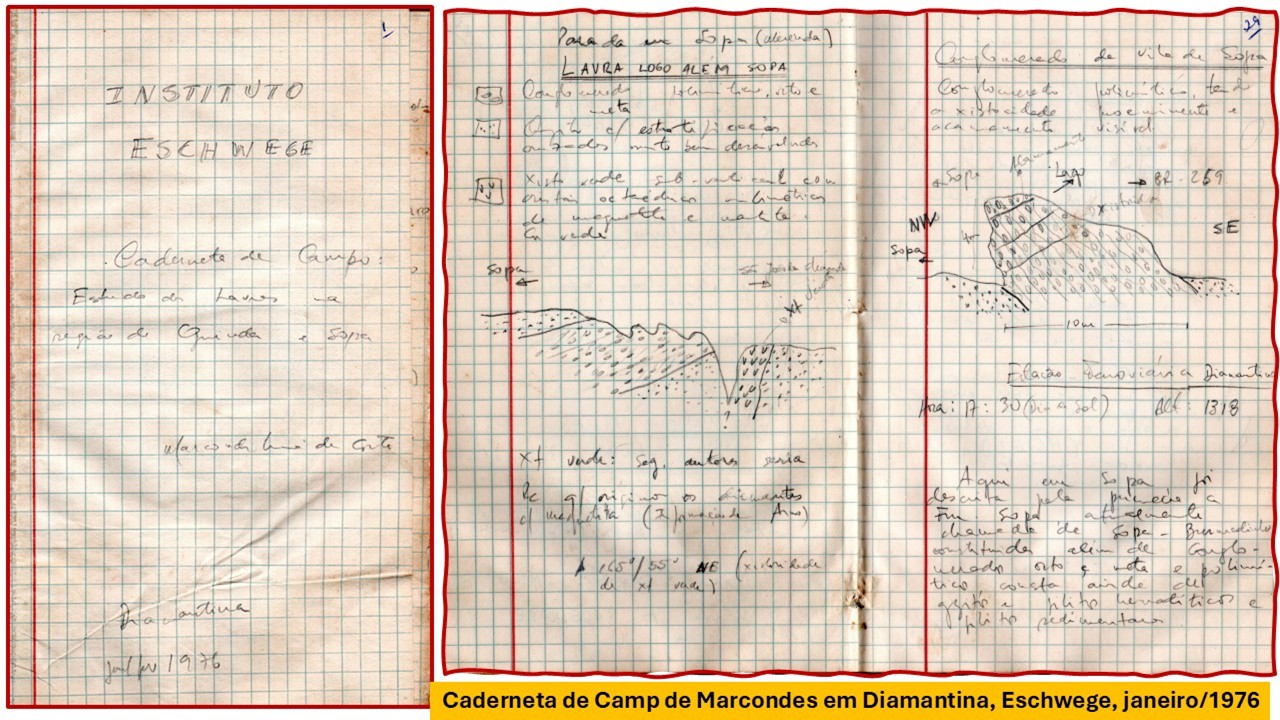 1
INSTITUTO
ESCHWEGE
Caderneta de Campo:
Estudo das Lavras na
região de Guinda e Sopa
Diamantina
jan/fev 1976
Parada em Sopa (merenda)
LAVRA LOGO ALÉM SOPA
Conglomerado polimítico, orto e
meta
c/ estratificações
cruzadas muito bem desenvolvidas
Xisto verde sub-vertical com
cristais octaédricos milimétricos
de magnetita e
verde
Sopa
xt verde
?
xt verde: seg. autores seria
q/ originou os diamantes
c/ magnetita (Informação de
165°/55° NE (xistosidade
de xt verde)
29
Conglomerado da vila de Sopa
Conglomerado polimítico, tendo
a xistosidade e
acamamento visível
Sopa
Acamamento
Lago
BR-259
xistosidade
NW
SE
Sopa
4m
10m
Estação Ferroviária Diamantina
Hora: 17:30 Alt: 1318
Aqui em Sopa foi
descrita pela primeira a
Fm. Sopa atualmente
chamada de Sopa-Brumadinho
constituída além de conglo-
merado orto e meta e polimí-
tico consta ainda de
qzito e filito hematíticos e
filito sedimentares
Caderneta de Camp de Marcondes em Diamantina, Eschwege, janeiro/1976